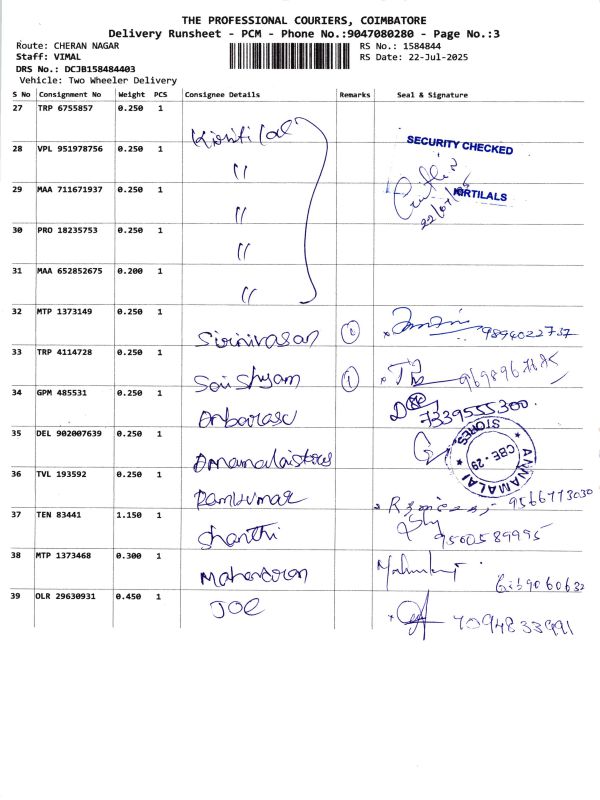 THE PROFESSIONAL COURIERS, COIMBATORE
Delivery Runsheet - PCM - Phone No.:9047080280 - Page No.:3
Route: CHERAN NAGAR
RS No.: 1584844
Staff: VIMAL
RS Date: 22-Jul-2025
DRS No.: DCJB158484403
Vehicle: Two Wheeler Delivery
S No Consignment No Weight PCS Consignee Details Remarks Seal & Signature
27 TRP 6755857 0.250 1
Kirtilal
SECURITY CHECKED
28 VPL 951978756 0.250 1
"
29 MAA 711671937 0.250 1
KIRTILALS
"
30 PRO 18235753 0.250 1
"
31 MAA 652852675 0.200 1
"
32 MTP 1373149 0.250 1
Srinivasan 9894022737
33 TRP 4114728 0.250 1
Sai Shyam
34 GPM 485531 0.250 1
Anbarasu 7339555300
35 DEL 902007639 0.250 1
Annamalai stores
ANNAMALAI STORES
CBE - 29
36 TVL 193592 0.250 1
Ramkumar 9566773030
37 TEN 83441 1.150 1
Shanthi 9500589995
38 MTP 1373468 0.300 1
Mahendran
39 OLR 29630931 0.450 1
JOE 7094833991